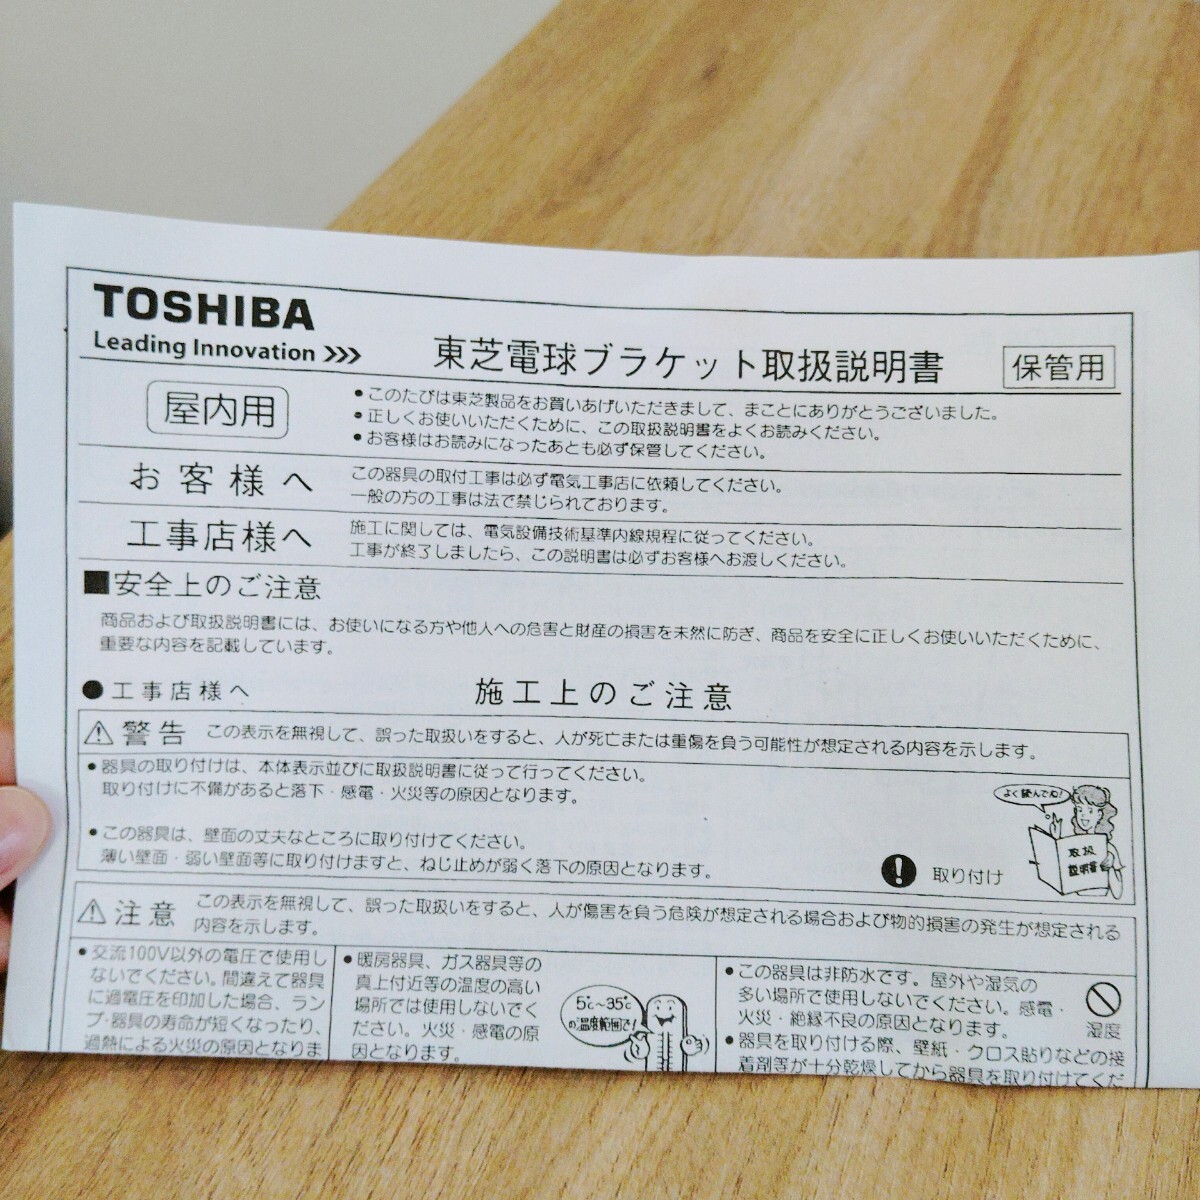 TOSHIBA
Leading Innovation >>>
東芝電球ブラケット取扱説明書
保管用
屋内用
●このたびは東芝製品をお買いあげいただきまして、まことにありがとうございました。
●正しくお使いいただくために、この取扱説明書をよくお読みください。
●お客様はお読みになったあとも必ず保管してください。
お客様へ
この器具の取付工事は必ず電気工事店に依頼してください。
一般の方の工事は法で禁じられております。
工事店様へ
施工に関しては、電気設備技術基準内線規程に従ってください。
工事が終了しましたら、この説明書は必ずお客様へお渡しください。
■安全上のご注意
商品および取扱説明書には、お使いになる方や他人への危害と財産の損害を未然に防ぎ、商品を安全に正しくお使いいただくために、
重要な内容を記載しています。
●工事店様へ
施工上のご注意
⚠警告
この表示を無視して、誤った取扱いをすると、人が死亡または重傷を負う可能性が想定される内容を示します。
●器具の取り付けは、本体表示並びに取扱説明書に従って行ってください。
取り付けに不備があると落下・感電・火災等の原因となります。
よく読んでね!
取扱
説明書
●この器具は、壁面の丈夫なところに取り付けてください。
薄い壁面・弱い壁面等に取り付けますと、ねじ止めが弱く落下の原因となります。
取り付け
⚠注意
この表示を無視して、誤った取扱いをすると、人が傷害を負う危険が想定される場合および物的損害の発生が想定される
内容を示します。
●交流100V以外の電圧で使用し
ないでください。間違えて器具
に過電圧を印加した場合、ラン
プ・器具の寿命が短くなったり、
過熱による火災の原因となりま
●暖房器具、ガス器具等の
真上付近等の温度の高い
場所では使用しないでく
ださい。火災・感電の原
因となります。
5℃~35℃
の温度範囲で!
●この器具は非防水です。屋外や湿気の
多い場所で使用しないでください。感電・
火災・絶縁不良の原因となります。
湿度
●器具を取り付ける際、壁紙・クロス貼りなどの接
着剤等が十分乾燥してから器具を取り付けてくだ